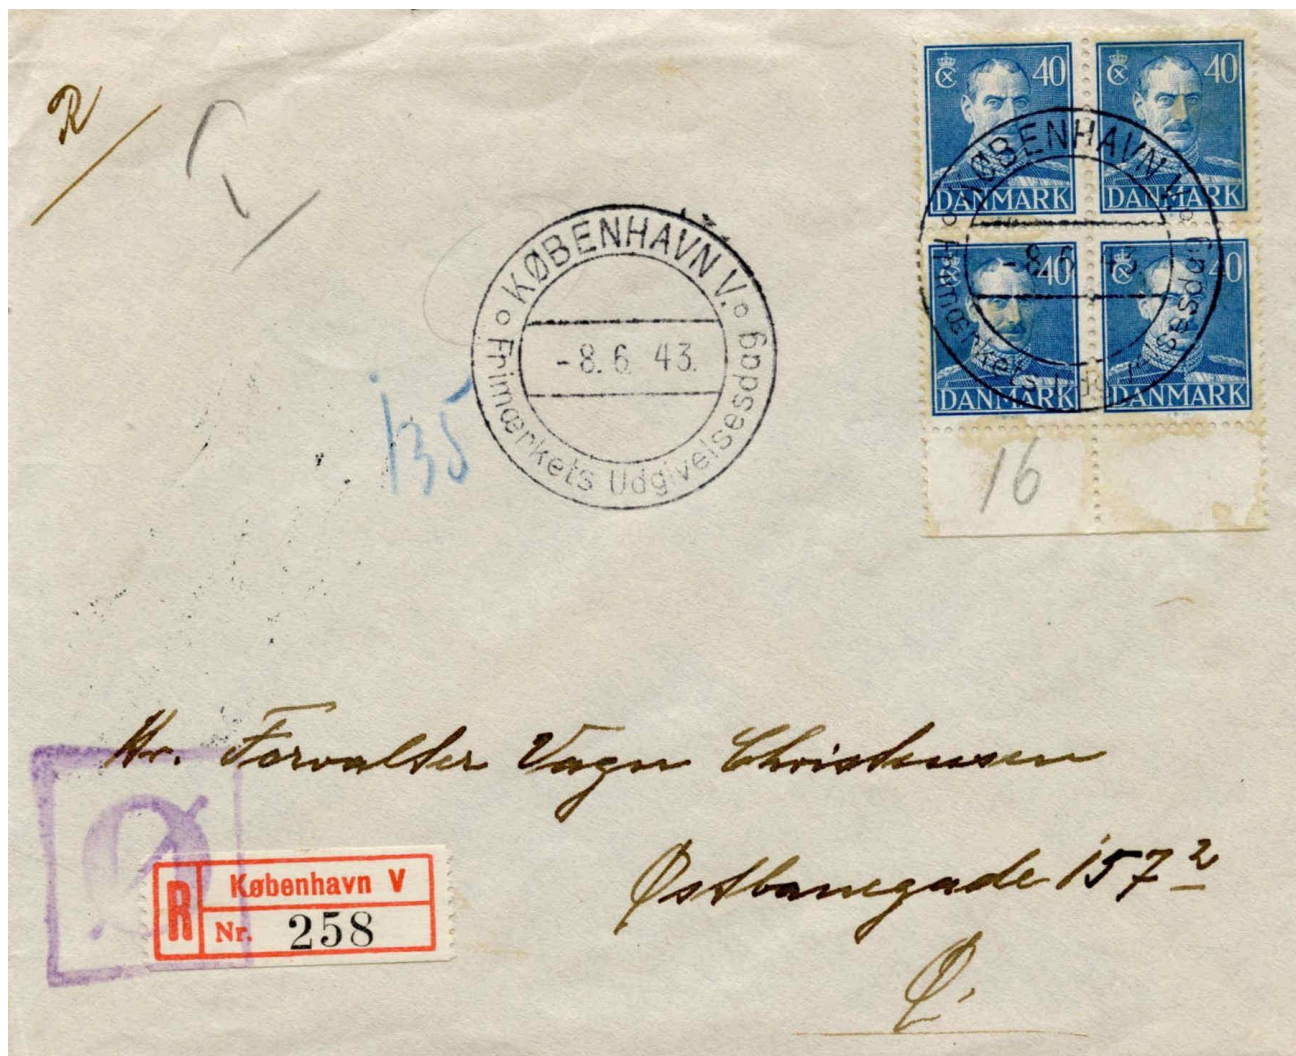 R
40 40
DANMARK DANMARK
40 40
DANMARK DANMARK
KØBENHAVN V.
-8.6.43.
Frimærkets Udgivelsesdag
KØBENHAVN V.
-8.6.43.
Frimærkets Udgivelsesdag
135
16
Hr. Forvalter Vagn Christensen
Østbanegade 157 2
Ø.
Ø
R København V
Nr. 258